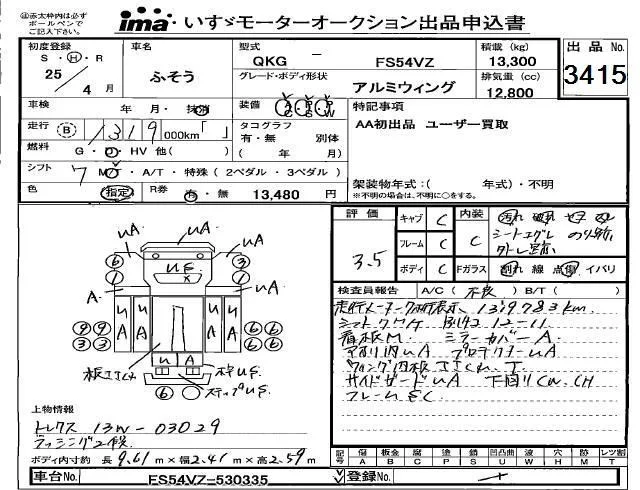 ◎赤太枠内は必ず
ボールペンで
ご記入下さい。
ima いすゞモーターオークション出品申込書
初度登録 車名 型式 積載 (kg) 出品 No.
S・H・R ふそう QKG － FS54VZ 13,300 3415
25年 4月 グレード・ボディ形状 アルミウィング 排気量 (cc) 12,800
車検 年 月・抹消 装備 AC PS PW 特記事項
走行 B 1319 000km「 」 タコグラフ 有・無 別体 AA初出品 ユーザー買取
燃料 G・D・HV 他( ) ( 年 月)
シフト 7 MT・A/T・特殊 (2ペダル・3ペダル) 架装物年式:( 年式)・不明
色 指定 R券 有・無 13,480 円 ※不明の場合は、不明に○をする。
評価 キャブ C 内装 汚れ
3.5 フレーム C C
ボディ C Fガラス 割れ 線 点傷 イバリ
検査員報告 A/C( 不良 ) B/T( )
走行メーター 139783km
12-11
看板M ミラーカバーA
アオリ内uA プロテクターuA
ウィング内板
サイドガードuA 下廻りCw. CH
フレームEC
uA uA
uA uA
⑥ ③
① ①
uS
A A
uA uA uA uA
⑨⑨ ⑥⑥
③③ ⑥⑥
u A
⑥
ステップuS
上物情報
トレクス 13W-03029
ラッシング2段
ボディ内寸約 長 9.61m×幅2.41m×高2.59m
記号 傷 板金 腐 塗 錆 凹凸曲 波 穴 跡 レツ割
A B C P S U W H M T
車台No. FS54VZ-530335 登録No.